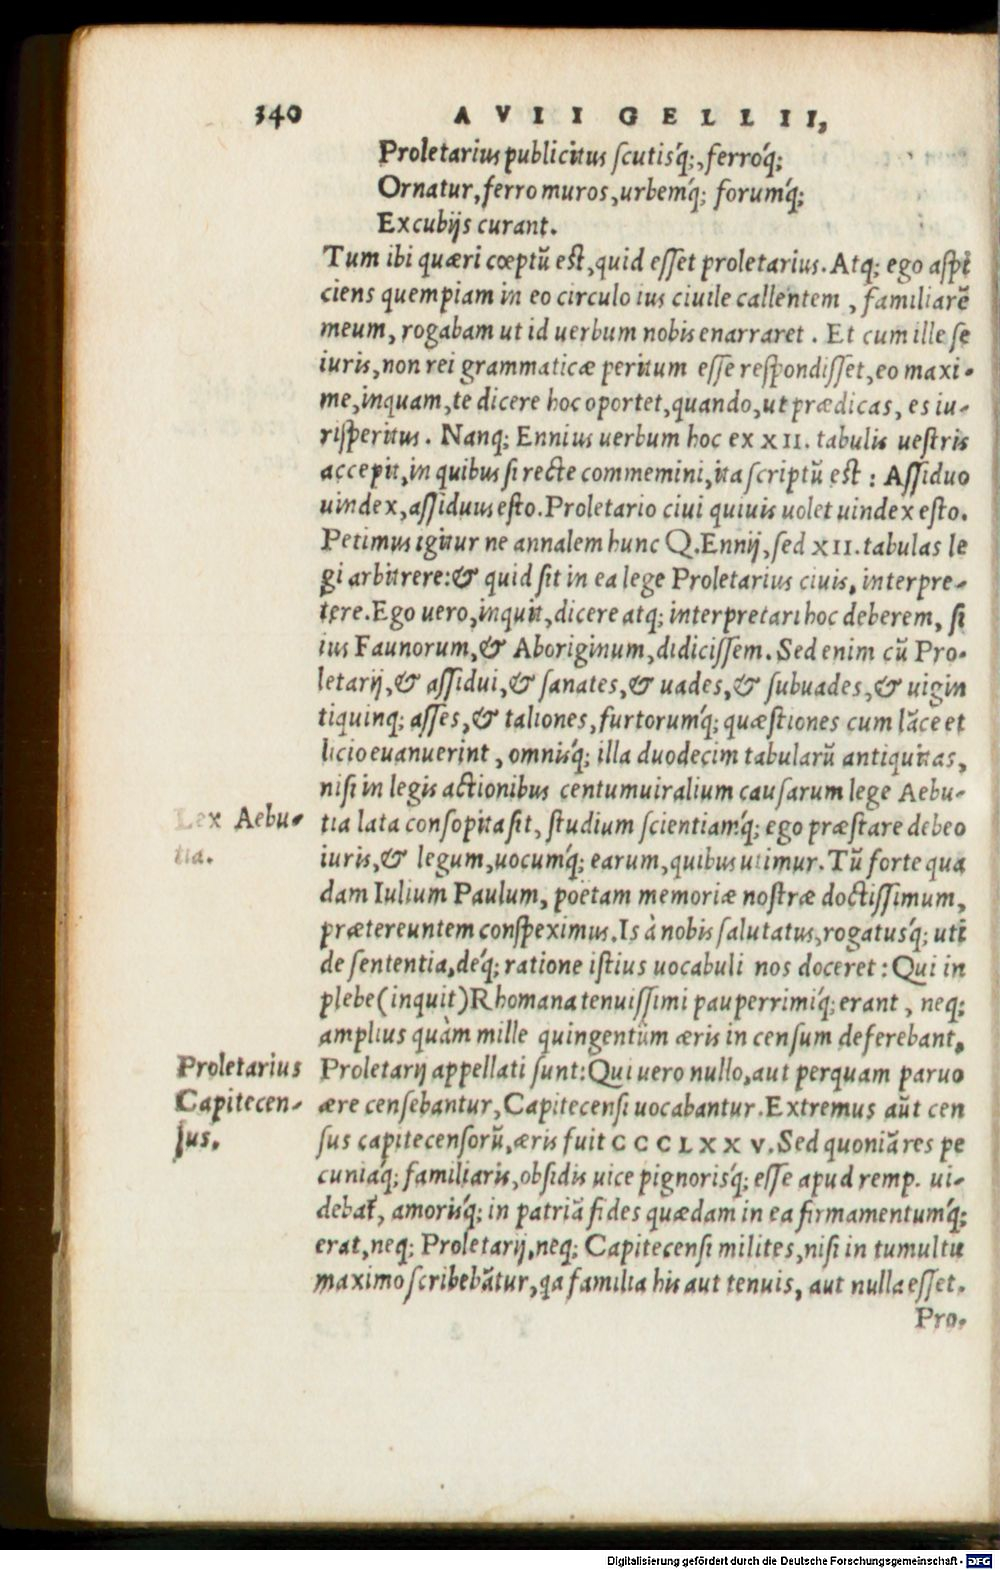 340 AVII GELLII,
Proletarius publicitus scutisq́;, ferroq́;
Ornatur, ferro muros, urbemq́; forumq́;
Excubijs curant.
Tum ibi quæri cœptũ est, quid esset proletarius. Atq; ego aspi
ciens quempiam in eo circulo ius ciuile callentem, familiarẽ
meum, rogabam ut id uerbum nobis enarraret. Et cum ille se
iuris, non rei grammaticæ peritum esse respondisset, eo maxi-
me, inquam, te dicere hoc oportet, quando, ut prædicas, es iu-
risperitus. Nanq; Ennius uerbum hoc ex XII. tabulis uestris
accepit, in quibus si recte commemini, ita scriptũ est: Assiduo
uindex, assiduus esto. Proletario ciui quiuis uolet uindex esto.
Petimus igitur ne annalem hunc Q. Ennij, sed XII. tabulas le
gi arbitrere: & quid sit in ea lege Proletarius ciuis, interpre-
tere. Ego uero, inquit, dicere atq; interpretari hoc deberem, si
ius Faunorum, & Aboriginum, didicissem. Sed enim cũ Pro-
letarij, & assidui, & sanates, & uades, & subuades, & uigin
tiquinq; asses, & taliones, furtorumq́; quæstiones cum lãce et
licio euanuerint, omnisq́; illa duodecim tabularũ antiquitas,
nisi in legis actionibus centumuiralium causarum lege Aebu-
Lex Aebu-
tia.
tia lata consopita sit, studium scientiamq́; ego præstare debeo
iuris, & legum, uocumq́; earum, quibus utimur. Tũ forte qua
dam Iulium Paulum, poëtam memoriæ nostræ doctissimum,
prætereuntem conspeximus. Is à nobis salutatus, rogatusq́; uti
de sententia, deq́; ratione istius uocabuli nos doceret: Qui in
plebe (inquit) Rhomana tenuissimi pauperrimiq́; erant, neq;
amplius quàm mille quingentûm æris in censum deferebant,
Proletarius
Capitecen-
sus.
Proletarij appellati sunt: Qui uero nullo, aut perquam paruo
ære censebantur, Capitecensi uocabantur. Extremus aũt cen
sus capitecensorũ, æris fuit CCCLXXV. Sed quoniã res pe
cuniaq́; familiaris, obsidis uice pignorisq́; esse apud remp. ui-
debat̃, amorisq́; in patriã fides quædam in ea firmamentumq́;
erat, neq; Proletarij, neq; Capitecensi milites, nisi in tumultu
maximo scribebãtur, qa familia his aut tenuis, aut nulla esset.
Pro-
Digitalisierung gefördert durch die Deutsche Forschungsgemeinschaft - DFG